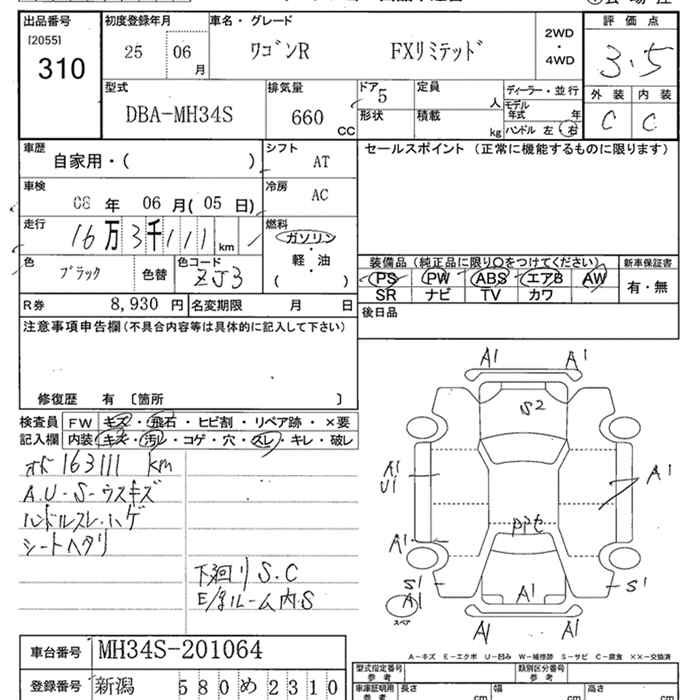 出品番号 初度登録年月 車名・グレード 評価点
[2055]
310 25 06月 ワゴンR FXリミテッド 2WD・4WD 3.5
型式 排気量 ドア 定員 ディーラー・並行 外装 内装
DBA-MH34S 660 CC 5 人 モデル年式 年 C C
形状 積載 kg ハンドル 左 右
車歴 シフト セールスポイント (正常に機能するものに限ります)
自家用・( ) AT
車検 冷房
08 年 06 月 (05 日) AC
走行 燃料
16万3千111 km ガソリン・軽・油 ( )
装備品 (純正品に限り○をつけてください) 新車保証書
色 色替 色コード
ブラック ZJ3
PS PW ABS エアB AW 有・無
SR ナビ TV カワ
R券 8,930 円 名変期限 月 日 後日品
注意事項申告欄 (不具合内容等は具体的に記入して下さい)
修復歴 有 〔箇所 〕
検査員記入欄 FW キズ・飛石・ヒビ割・リペア跡・×要
内装 キズ・汚レ・コゲ・穴・スレ・キレ・破レ
オド 163111 km
A.U-S-ウスキズ
ハンドルスレ.ハゲ
シートヘタリ
下廻り S.C
E/gルーム内.S
A1 A1
S2
A1 U1 A1
ppt
A1
S1 S1
A1 A1
スペア
A1 A1
A-キズ E-エクボ U-凹み W-補修跡 S-サビ C-腐食 ××-交換済
車台番号 MH34S-201064
型式指定番号 参考 類別区分番号 参考
登録番号 新潟 580 め 2310
車庫証明用 参考 長さ cm 幅 cm 高さ cm